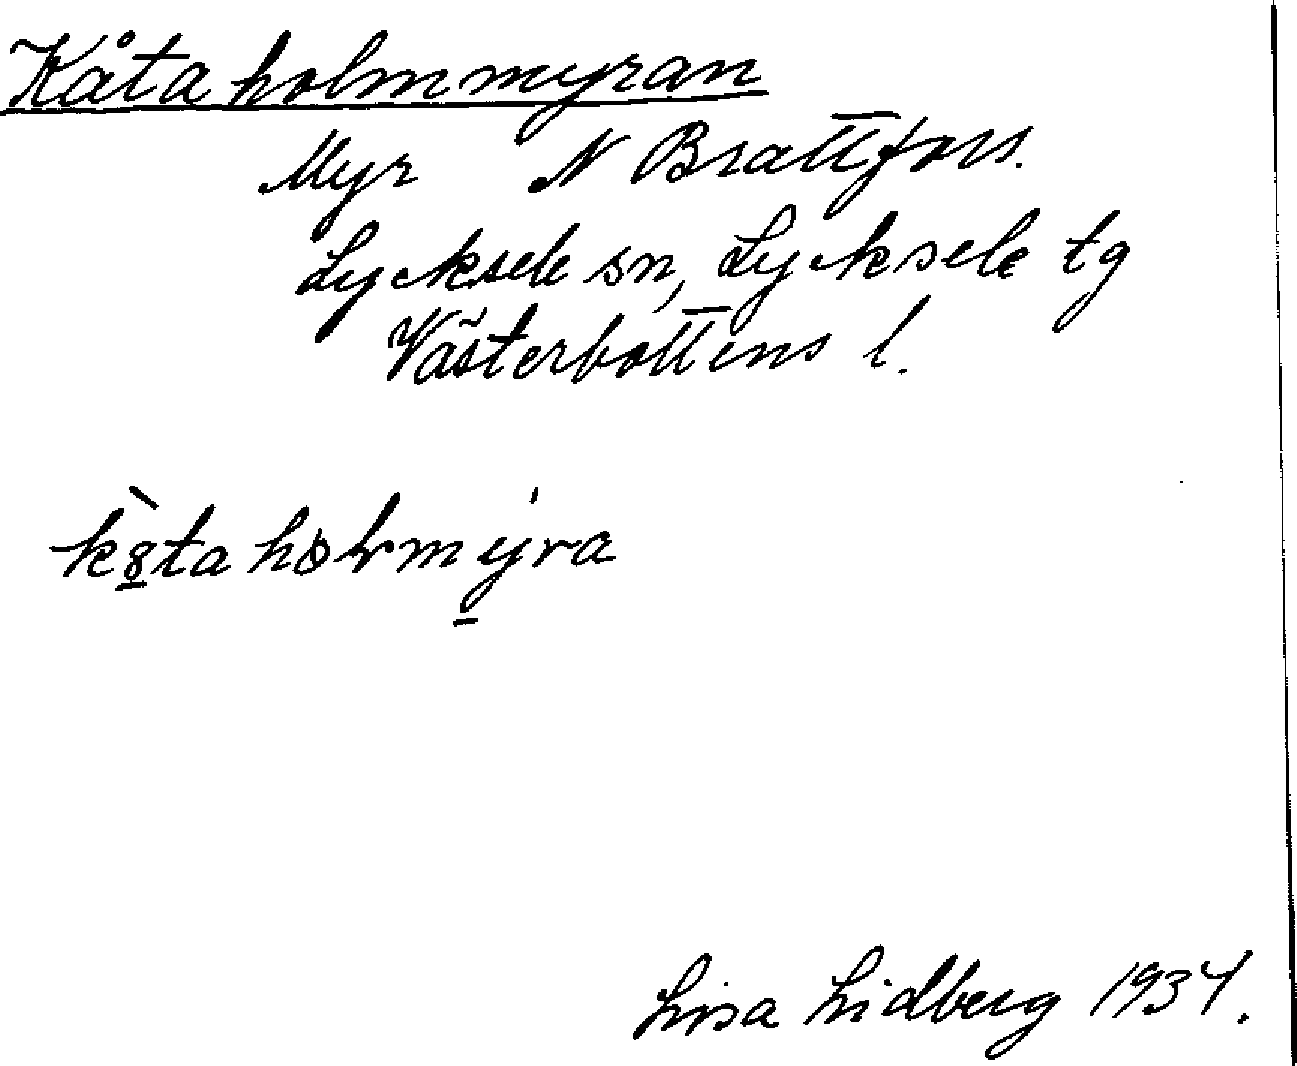 Kåtaholmmyran
Myr N Brattfors.
Lycksele sn, Lycksele tg
Västerbottens l.
Lisa Lidberg 1934.